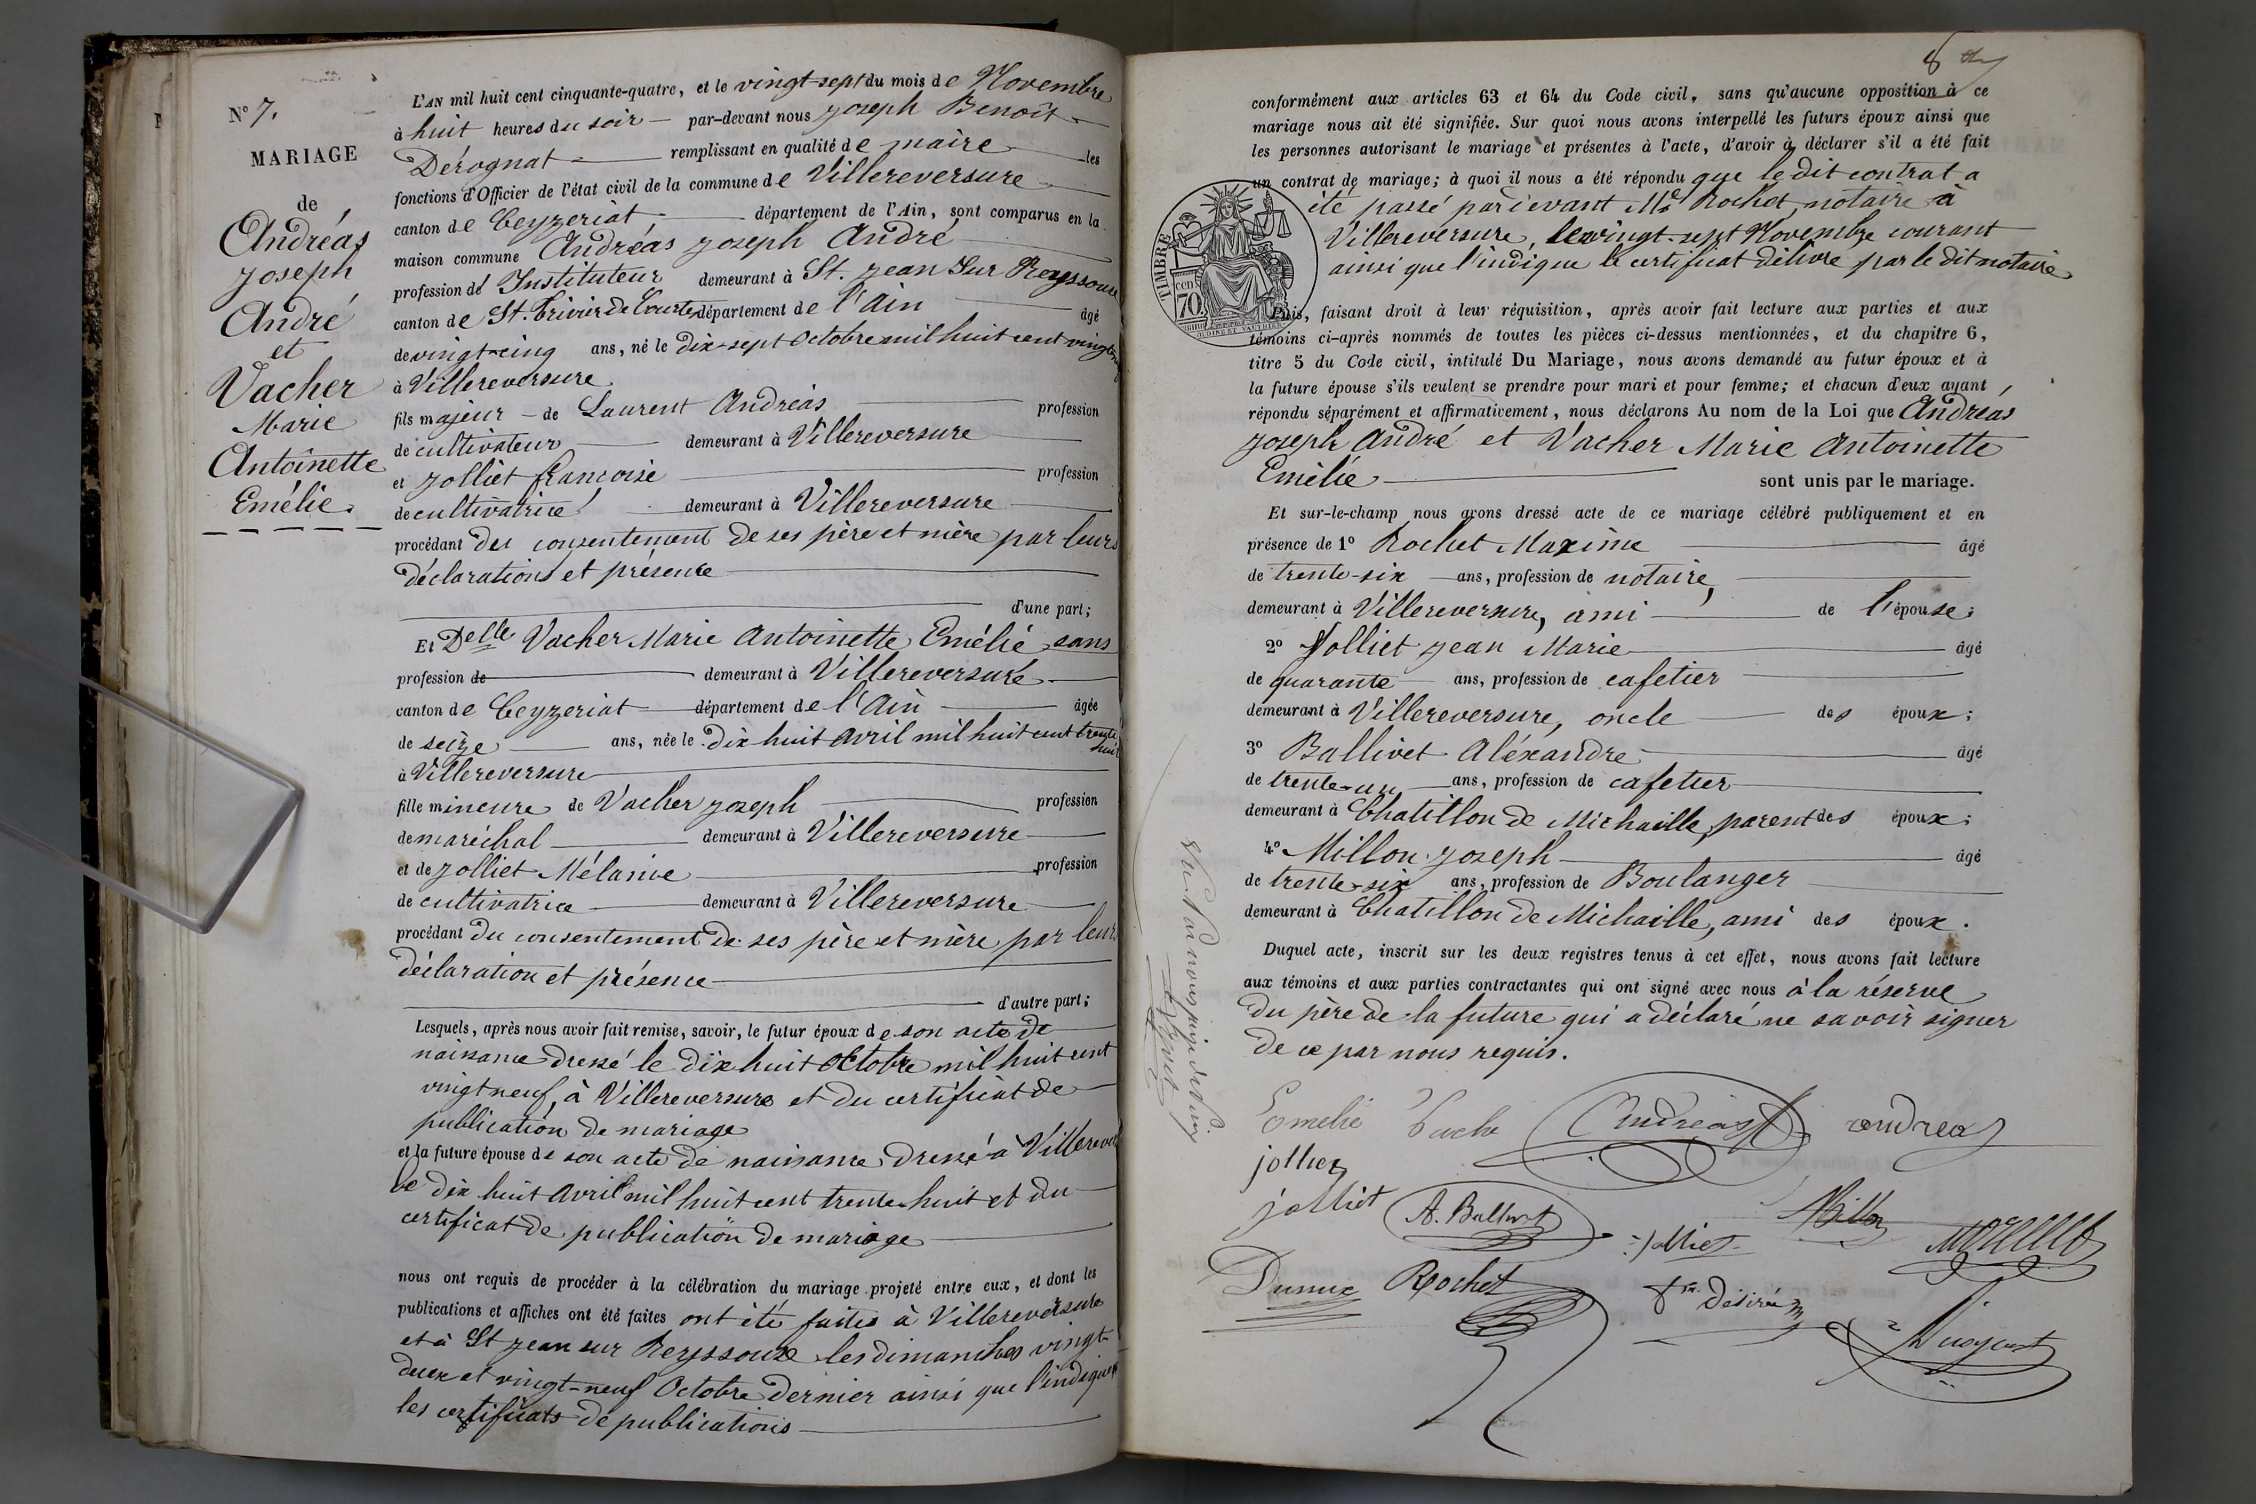 N° 7.
MARIAGE
de
Andréas
Joseph
André
et
Vacher
Marie
Antoinette
Emélie.
L'AN mil huit cent cinquante-quatre, et le vingt-sept du mois de Novembre
à huit heures du soir par-devant nous Joseph Benoît
Dérognat remplissant en qualité de maire les
fonctions d'Officier de l'état civil de la commune de Villereversure
canton de Ceyzeriat département de l'Ain, sont comparus en la
maison commune Andréas Joseph André
profession de Instituteur demeurant à St. Jean Sur Reyssouze
canton de St. Trivier de Courtes département de l'Ain âgé
de vingt-cinq ans, né le dix-sept Octobre mil huit cent vingt-neuf
à Villereversure
fils majeur de Laurent Andréas profession
de cultivateur demeurant à Villereversure
et Jolliet françoise profession
de cultivatrice demeurant à Villereversure
procédant du consentement de ses père et mère par leurs
déclarations et présence
d'une part;
Et Delle Vacher Marie Antoinette Emélie sans
profession de demeurant à Villereversure
canton de Ceyzeriat département de l'Ain âgée
de seize ans, née le dix huit avril mil huit cent trente
huit
à Villereversure
fille mineure de Vacher Joseph profession
de maréchal demeurant à Villereversure
et de Jolliet Mélanie profession
de cultivatrice demeurant à Villereversure
procédant du consentement de ses père et mère par leurs
déclaration et présence
d'autre part;
Lesquels, après nous avoir fait remise, savoir, le futur époux de son acte de
naissance dressé le dix huit Octobre mil huit cent
vingt neuf, à Villereversure et du certificat de
publication de mariage
et la future épouse de son acte de naissance dressé à Villereve
le dix huit avril mil huit cent trente-huit et du
certificat de publication de mariage
nous ont requis de procéder à la célébration du mariage projeté entre eux, et dont les
publications et affiches ont été faites ont été faites à Villereversure
et à St Jean sur Reyssouze les dimanches vingt-
deux et vingt-neuf Octobre dernier ainsi que l'indiquent
les certificats de publications
conformément aux articles 63 et 64 du Code civil, sans qu'aucune opposition à ce
mariage nous ait été signifiée. Sur quoi nous avons interpellé les futurs époux ainsi que
les personnes autorisant le mariage et présentes à l'acte, d'avoir à déclarer s'il a été fait
un contrat de mariage; à quoi il nous a été répondu que le dit contrat a
été passé par devant Me Rochet, notaire à
Villereversure, le vingt-sept Novembre courant
ainsi que l'indique le certificat délivré par le dit notaire
TIMBRE
70 cen
Puis, faisant droit à leur réquisition, après avoir fait lecture aux parties et aux
témoins ci-après nommés de toutes les pièces ci-dessus mentionnées, et du chapitre 6,
titre 5 du Code civil, intitulé Du Mariage, nous avons demandé au futur époux et à
la future épouse s'ils veulent se prendre pour mari et pour femme; et chacun d'eux ayant
répondu séparément et affirmativement, nous déclarons Au nom de la Loi que Andréas
Joseph André et Vacher Marie Antoinette
Emélie sont unis par le mariage.
Et sur-le-champ nous avons dressé acte de ce mariage célébré publiquement et en
présence de 1° Rochet Maxime âgé
de trente-six ans, profession de notaire,
demeurant à Villereversure, ami de l'épouse;
2° Jolliet Jean Marie âgé
de quarante ans, profession de cafetier
demeurant à Villereversure, oncle des époux;
3° Ballivet Aléxandre âgé
de trente-un ans, profession de cafetier
demeurant à Chatillon de Michaille, parent des époux;
4° Millon Joseph âgé
de trente-six ans, profession de Boulanger
demeurant à Chatillon de Michaille, ami des époux.
Duquel acte, inscrit sur les deux registres tenus à cet effet, nous avons fait lecture
aux témoins et aux parties contractantes qui ont signé avec nous à la réserve
du père de la future qui a déclaré ne savoir signer
de ce par nous requis.
Emelie Vache Andréas andréas
jolliet
jolliet A. Ballivet Jolliet Millon
Rochet
Désirée